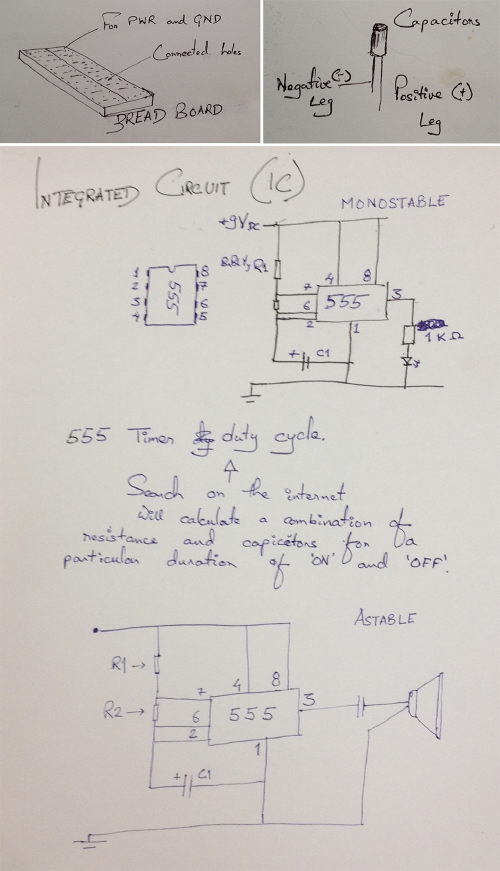 For PWR and GND
Connected holes
BREAD BOARD
Capacitors
Negative (-)
Leg
Positive (+)
Leg
INTEGRATED CIRCUIT (IC)
MONOSTABLE
+9V DC
R1
1 8
2 7
3 6
4 5
555
4 8
7
6
2
555
3
1
1KΩ
+ C1
555 Timer duty cycle.
Search on the internet
will calculate a combination of
resistance and capicitors for a
particular duration of 'ON' and 'OFF'.
ASTABLE
R1
R2
4 8
7
6
2
555
3
1
+ C1